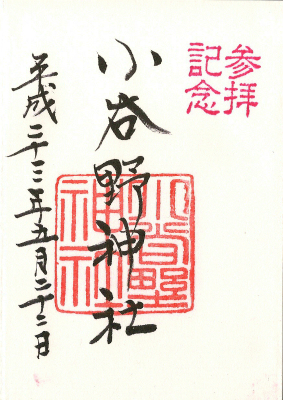 参拝
記念
小谷野神社
小谷野
神社
平成二十三年五月二十二日